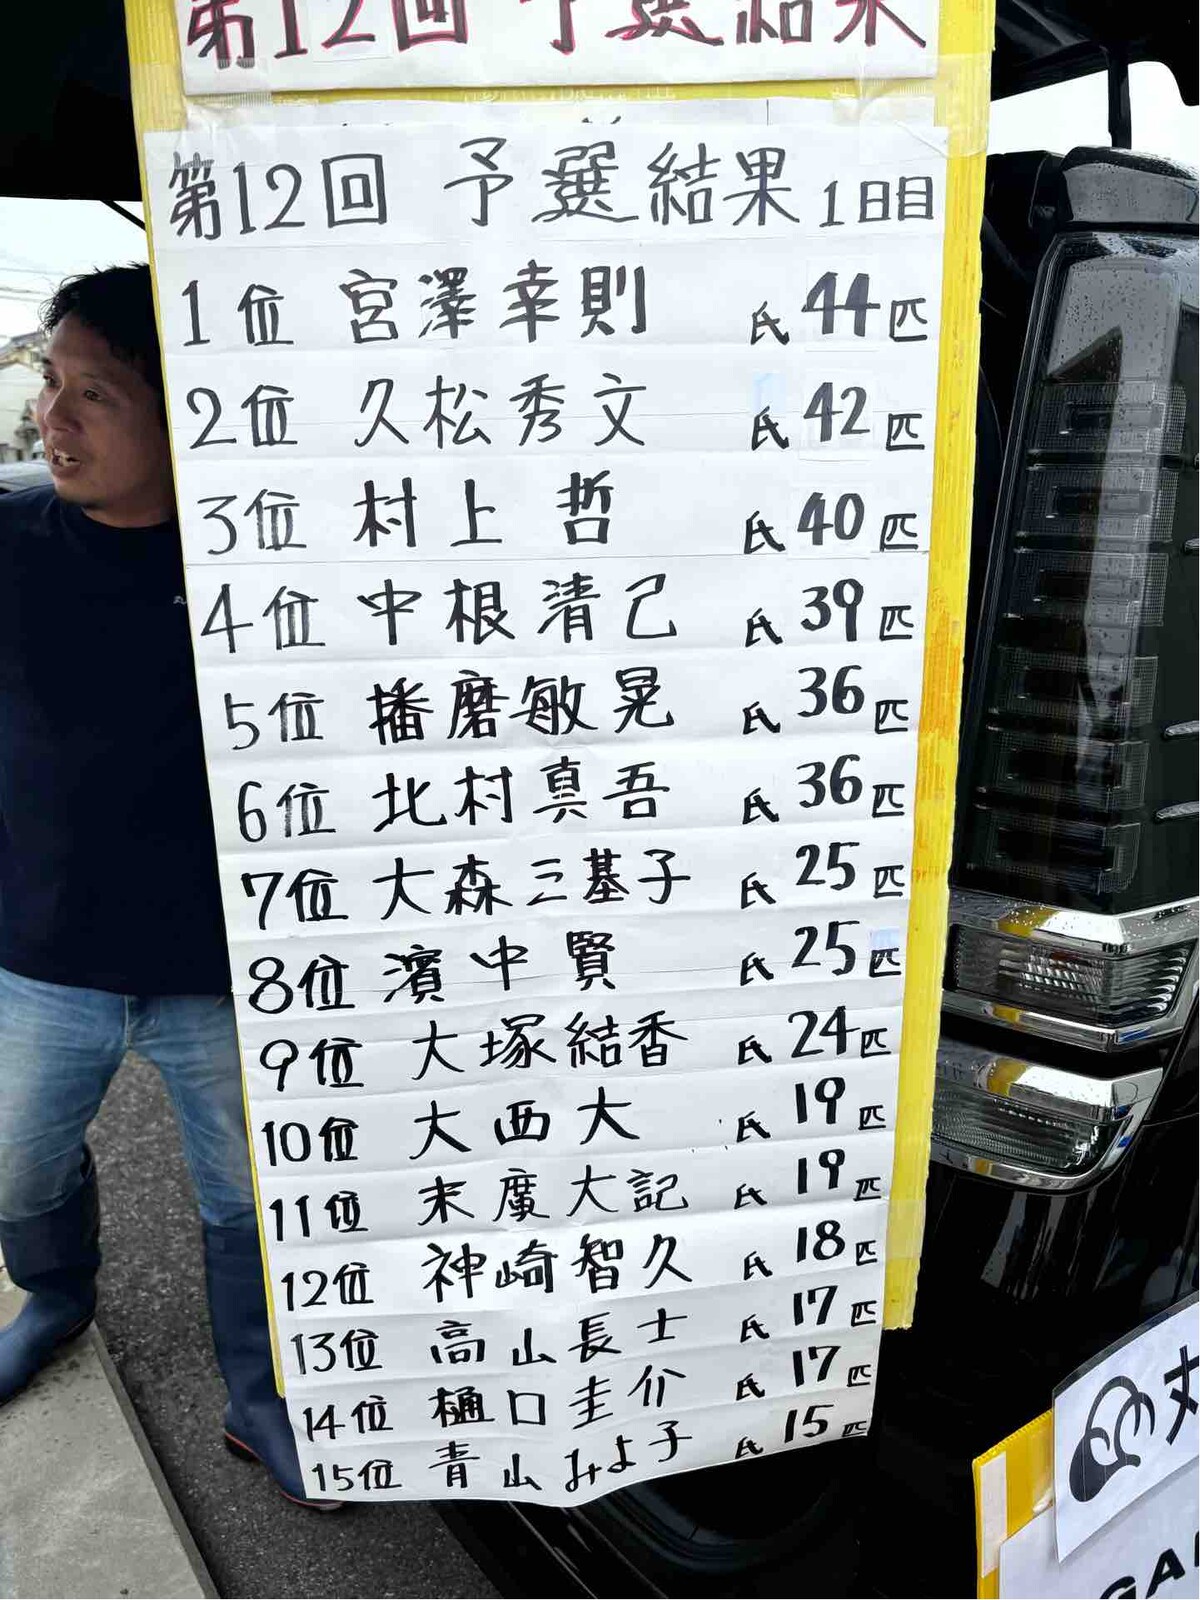 第12回 予選結果
第12回 予選結果 1日目
1位 宮澤幸則 氏 44匹
2位 久松秀文 氏 42匹
3位 村上 哲 氏 40匹
4位 中根清己 氏 39匹
5位 播磨敏晃 氏 36匹
6位 北村真吾 氏 36匹
7位 大森三基子 氏 25匹
8位 濱中賢 氏 25匹
9位 大塚結香 氏 24匹
10位 大西大 氏 19匹
11位 末廣大記 氏 19匹
12位 神崎智久 氏 18匹
13位 高山長士 氏 17匹
14位 樋口圭介 氏 17匹
15位 青山みよ子 氏 15匹